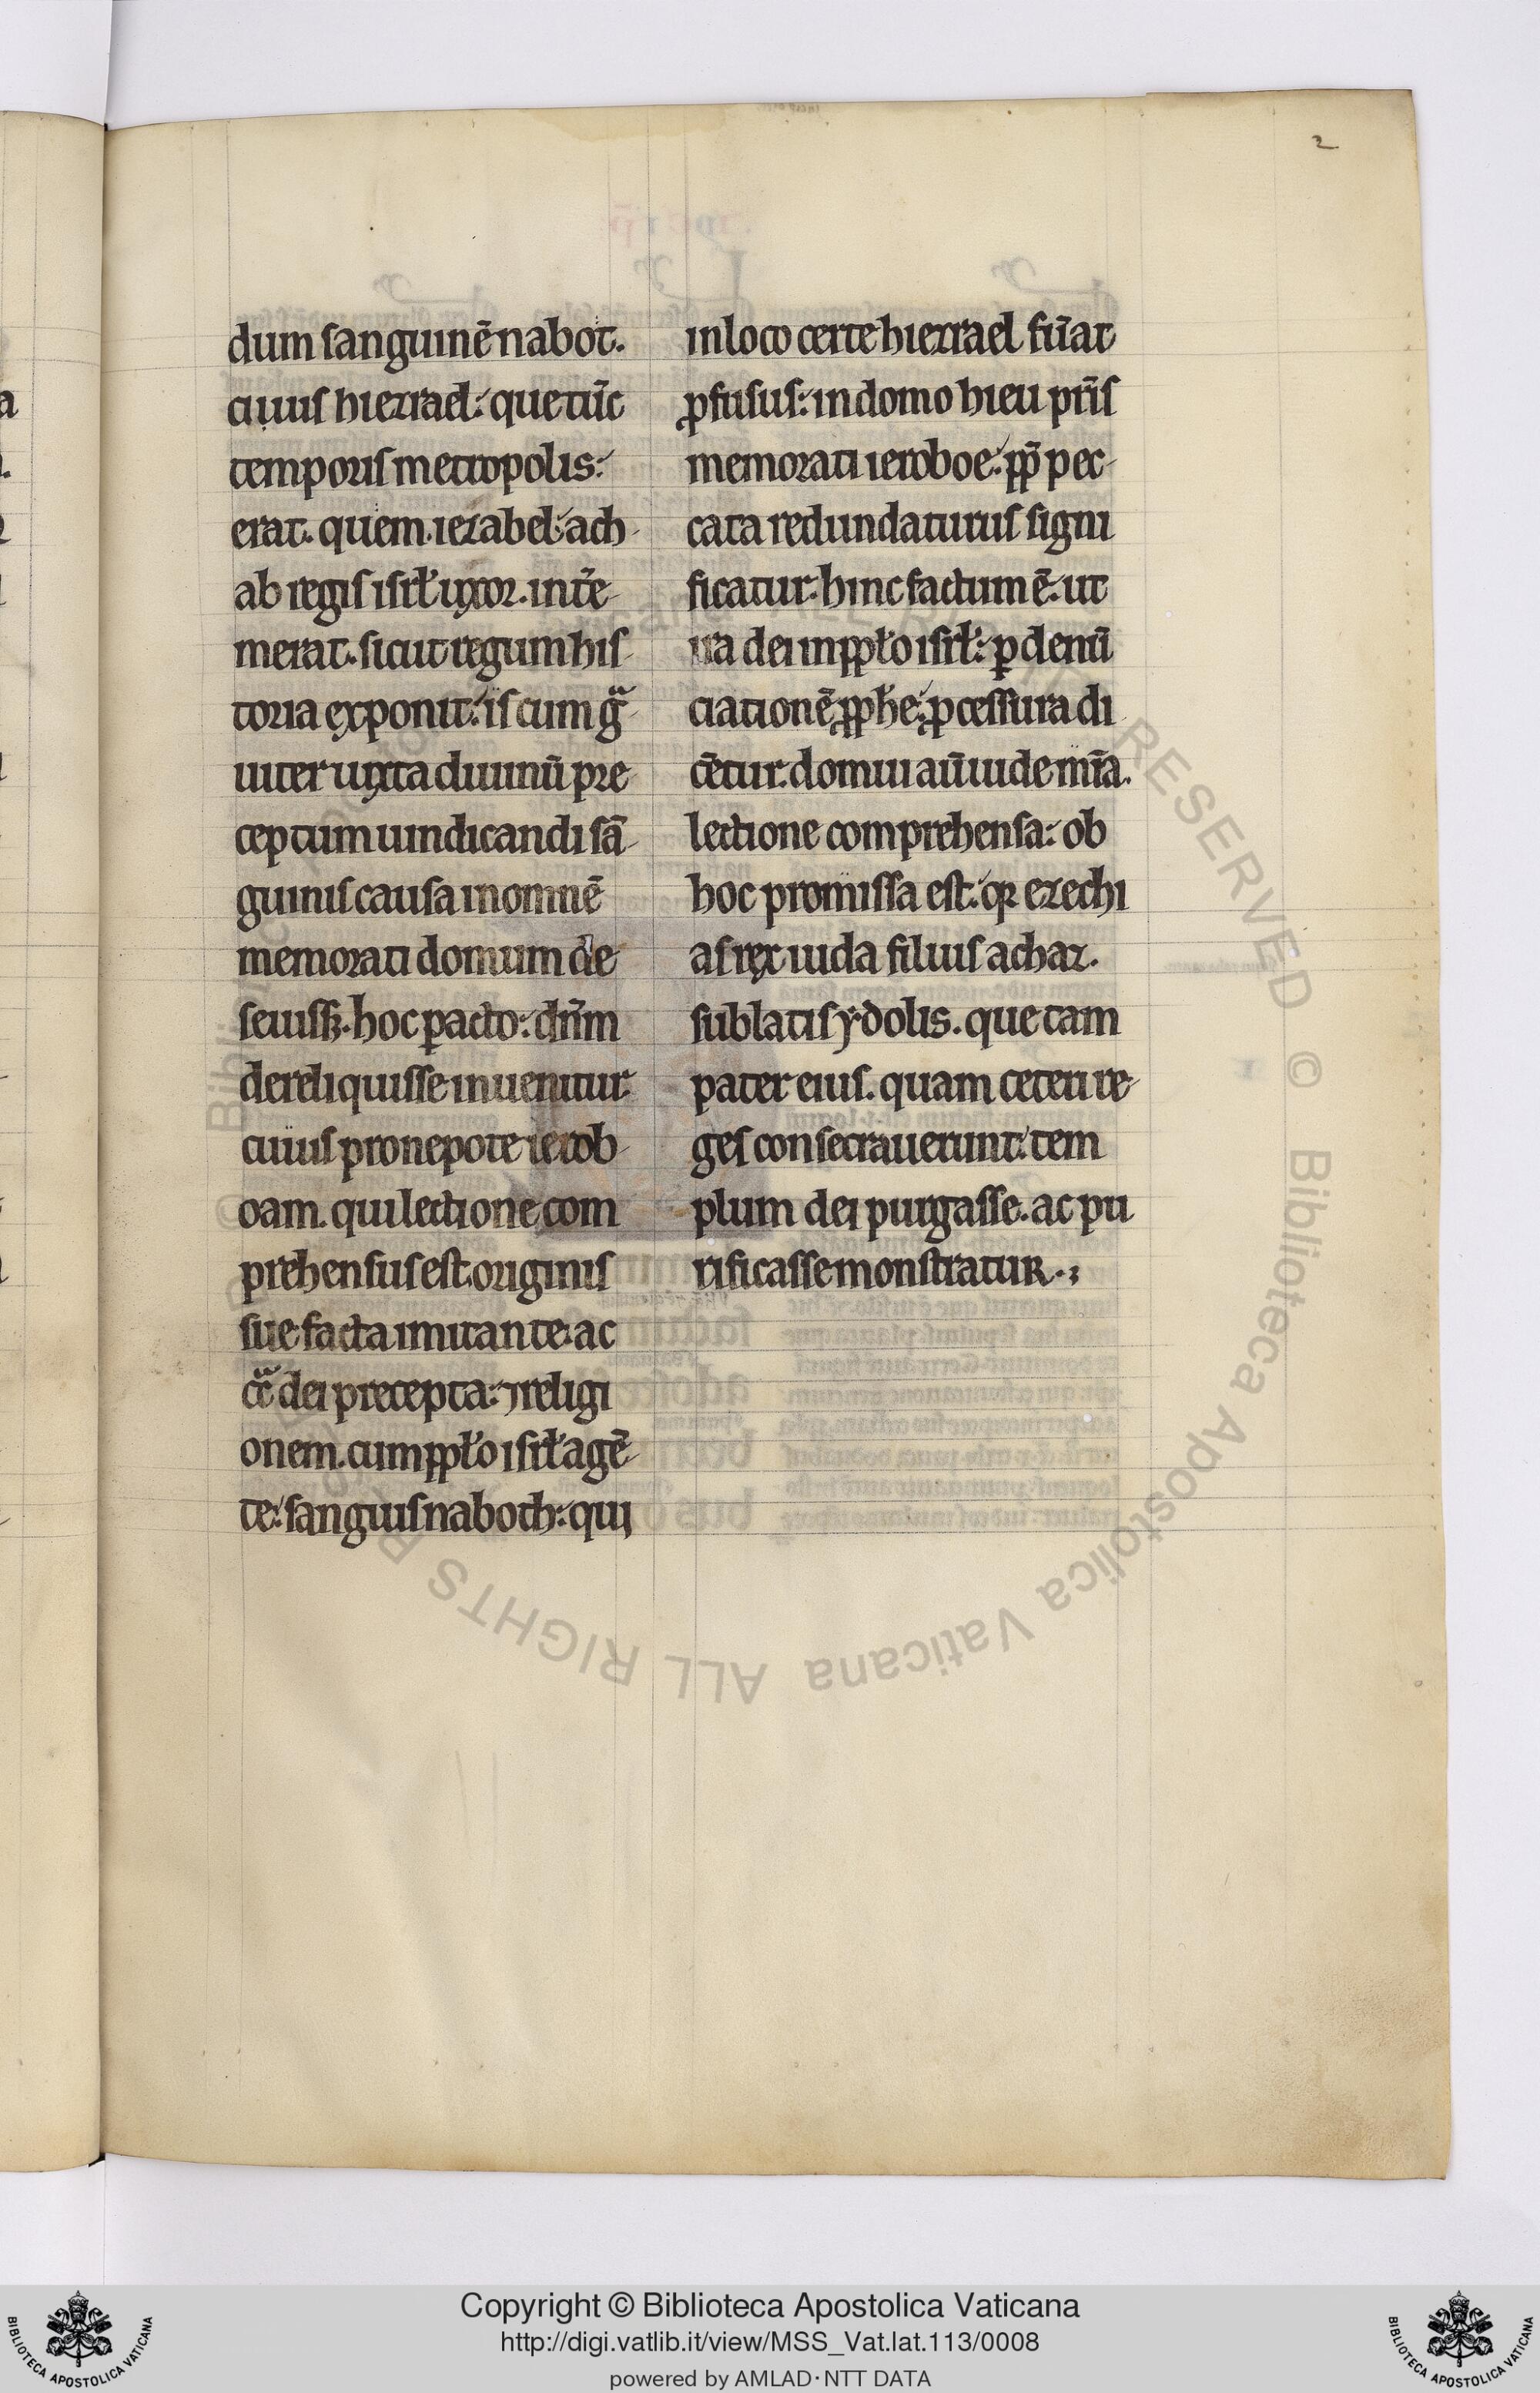 2
dum sanguinē nabot.
ciuuis hiezrael: que tūc
temporis metropolis:
erat. quem iezabel: ach
ab regis isrł uxor. inte
merat. sicut regum his
toria exponit: is cum g̃
uiter iuxta diuinū pre
ceptum uindicandi sā
guinis causa in omnē
memorati domum de
seuiss&. hoc ꝑ acto: dn̄m
dereliquisse inuenitur
cuius pronepote ierob
oam. qui lectione com
prehensus est. originis
sue facta imitante. ac
cc̃ dei precepta: ⁊ religi
onem. cum ppło isrł agē
te: sanguis naboth: qui
in loco certe hiezrael fūat
ꝓfusus: in domo hieu pr̄is
memorati ieroboe: pp̄ pec
cata redundaturus signi
ficatur. hinc factum ē. ut
ira dei in ppło isrł: ꝑ denū
ciationē ꝓphe: ꝓcessura di
cētur. domui aū iude mīa.
lectione comprehensa: ob
hoc promissa est: qr ezechi
as rex iuda filius achaz.
sublatis ydolis. que tam
pater eius. quam ceteri re
ges consecrauerunt: tem
plum dei purgasse. ac pu
rificasse monstratur.
Copyright © Biblioteca Apostolica Vaticana
http://digi.vatlib.it/view/MSS_Vat.lat.113/0008
powered by AMLAD·NTT DATA
BIBLIOTECA APOSTOLICA VATICANA
BIBLIOTECA APOSTOLICA VATICANA
© Biblioteca Apostolica Vaticana ALL RIGHTS RESERVED